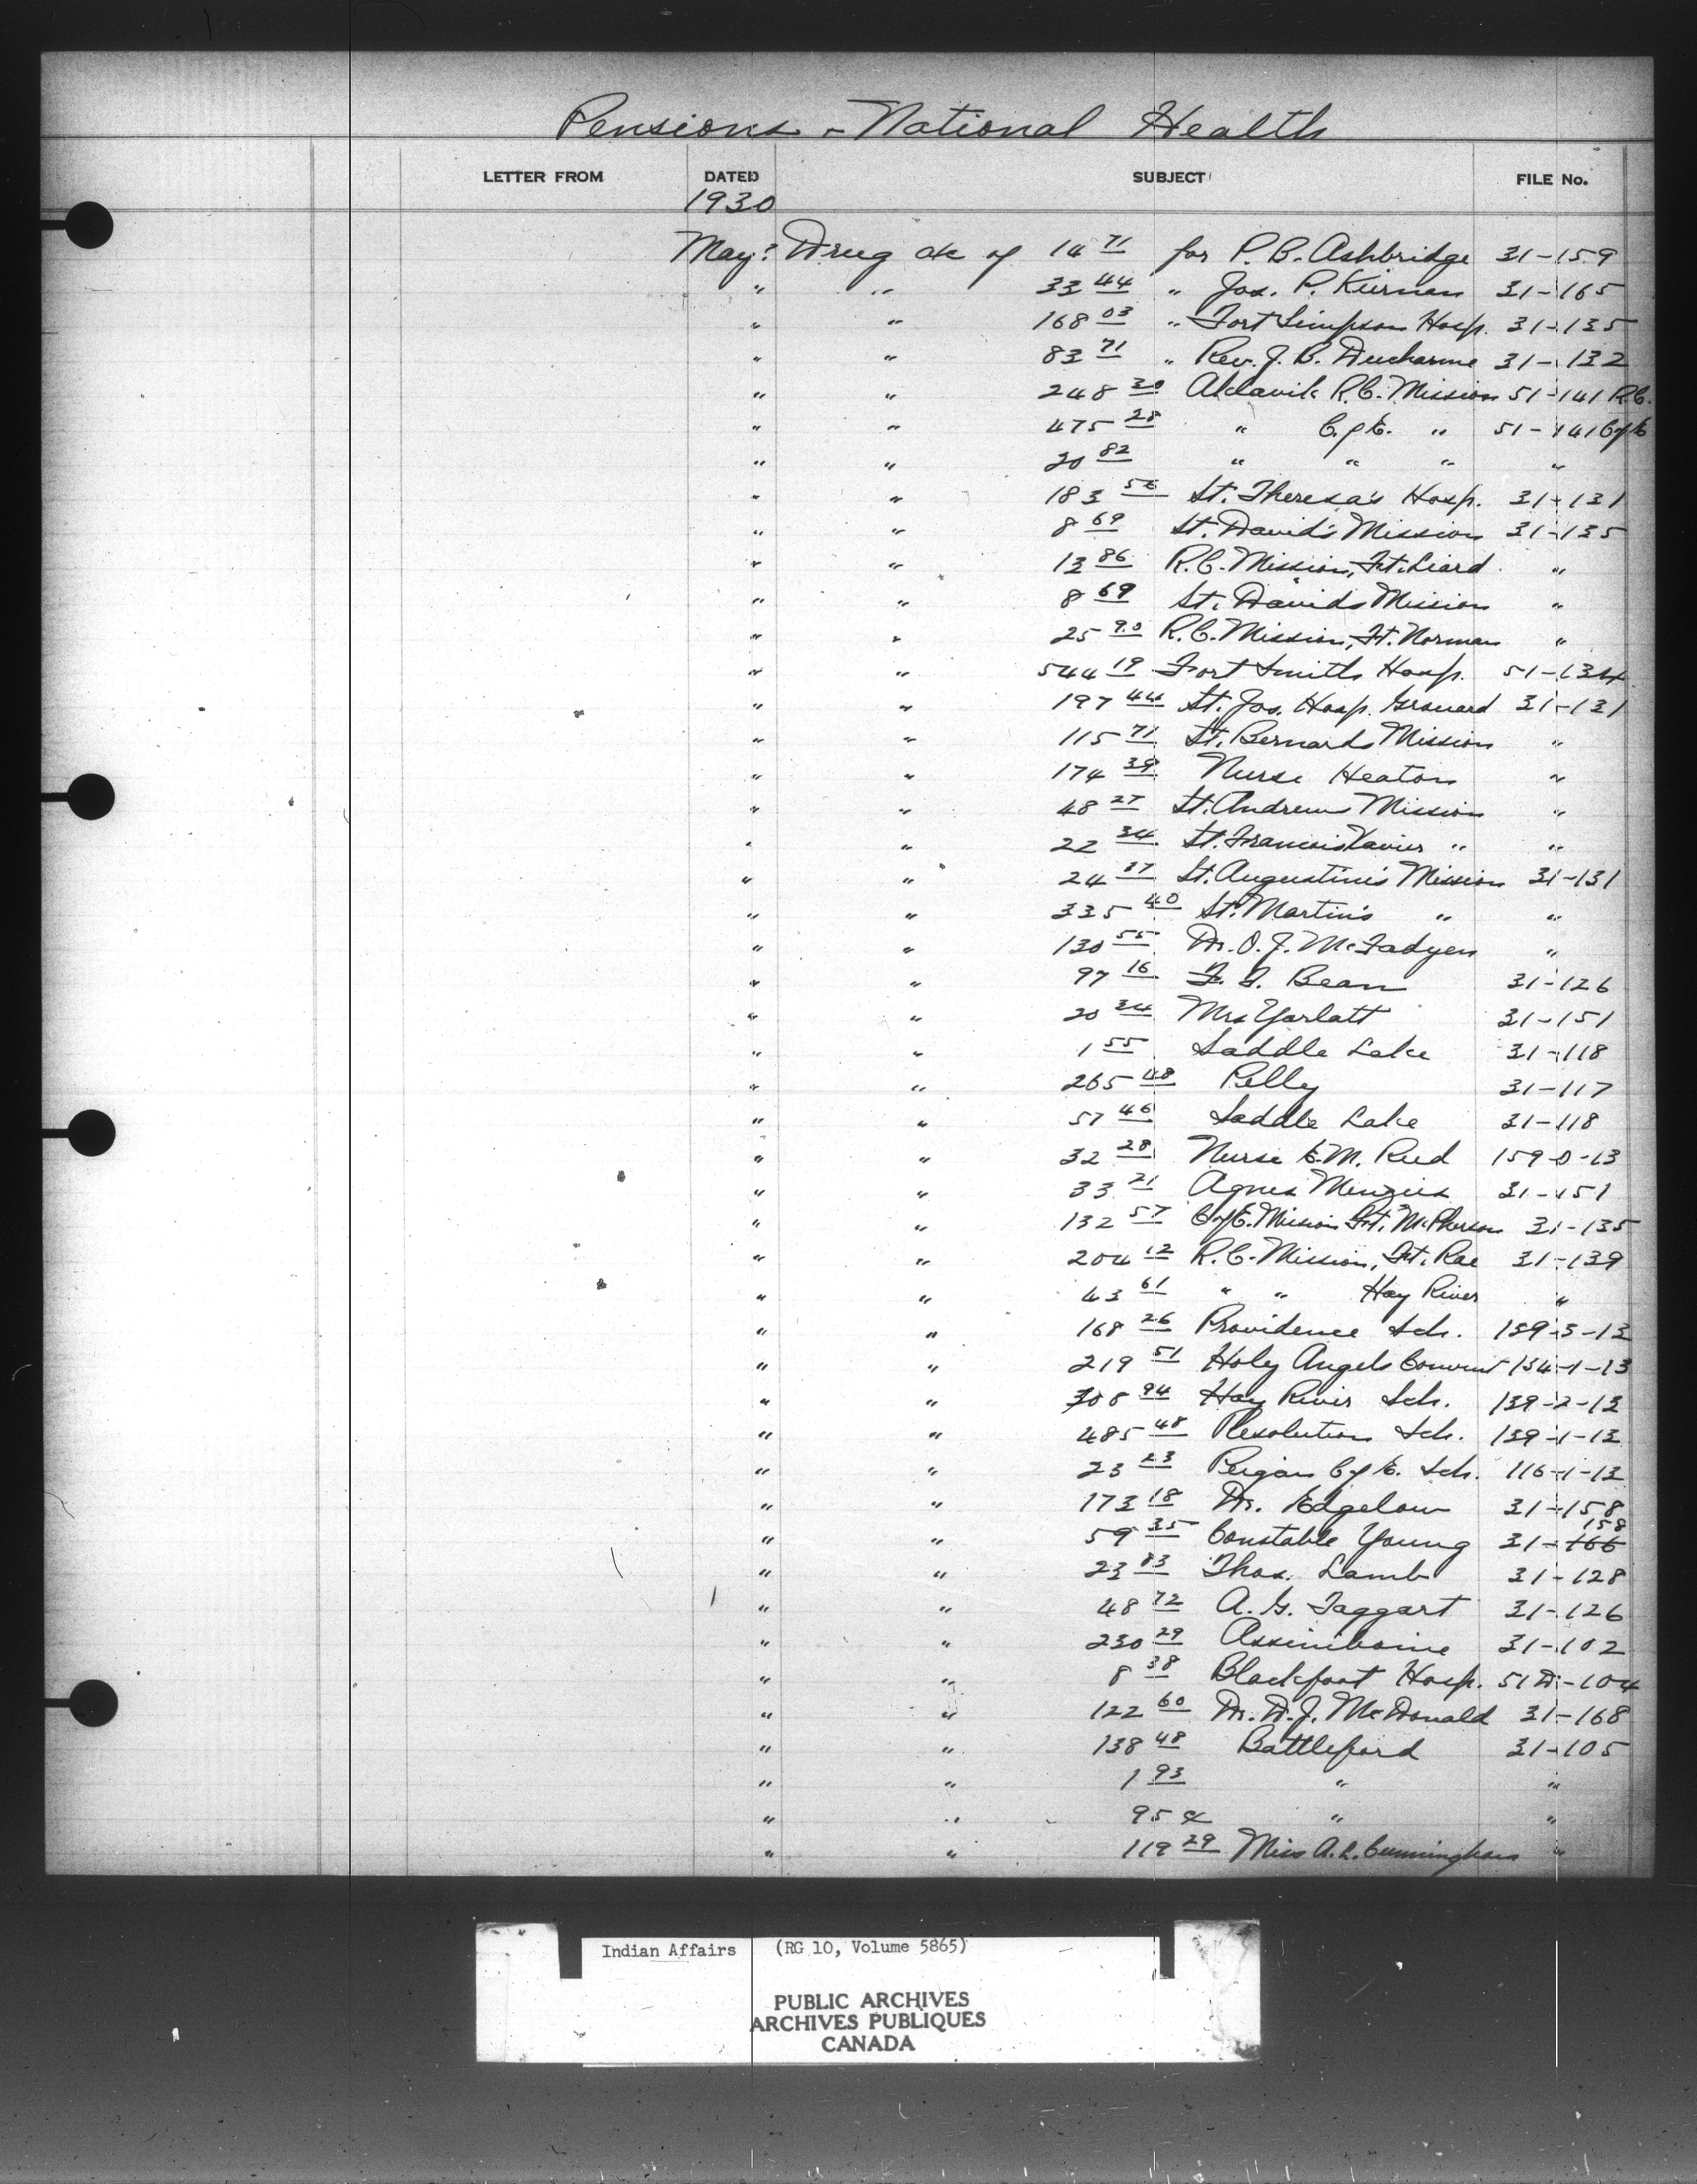 Pensions - National Health
LETTER FROM DATED SUBJECT FILE No.
1930
May? Drug a/c of 14 71 for P. B. Ashbridge 31-159
" " 33 44 " Jos. P. Kiernan 31-165
" " 168 03 " Fort Simpson Hosp. 31-135
" " 83 71 " Rev. J. B. Ducharme 31-132
" " 248 30 Aklavik R.C. Mission 51-141 R.C.
" " 475 28 " C. of E. " 51-141 C of E
" " 20 82 " " " "
" " 183 56 St. Theresa's Hosp. 31-131
" " 8 69 St. David's Mission 31-135
" " 13 86 R.C. Mission, Ft. Liard "
" " 8 69 St. David's Mission "
" " 25 90 R.C. Mission, Ft. Norman "
" " 544 19 Fort Smith Hosp. 51-134
" " 197 44 St. Jos. Hosp. Grouard 31-131
" " 115 71 St. Bernards Mission "
" " 174 39 Nurse Heaton "
" " 48 27 St. Andrews Mission "
" " 22 34 St. Francois Xavier " "
" " 24 37 St. Augustine's Mission 31-131
" " 335 40 St. Martin's " "
" " 130 55 Dr. O. J. McFadyen "
" " 97 16 F. F. Bean 31-126
" " 20 34 Mrs Yarlatt 31-151
" " 1 55 Saddle Lake 31-118
" " 265 48 Pelly 31-117
" " 57 46 Saddle Lake 31-118
" " 32 28 Nurse E. M. Reed 159-0-13
" " 33 21 Agnes Menzies 31-151
" " 132 57 C of E. Mission Ft. McPherson 31-135
" " 204 12 R.C. Mission, Ft. Rae 31-139
" " 43 61 " " Hay River "
" " 168 26 Providence Sch. 139-3-13
" " 219 51 Holy Angels Convent 134-1-13
" " 308 94 Hay River Sch. 139-2-13
" " 485 48 Resolution Sch. 139-1-13
" " 23 23 Peigan C of E. Sch. 116-1-13
" " 173 18 Dr. Edgelow 31-158
" " 59 35 Constable Young 31-166 158
" " 23 83 Thos. Lamb 31-128
" " 48 72 A. G. Taggart 31-126
" " 230 29 Assiniboine 31-102
" " 8 38 Blackfoot Hosp. 51D-104
" " 122 60 Dr. D. J. McDonald 31-168
" " 138 48 Battleford 31-105
" " 1 93 " "
" " 95 ¢ " "
" " 119 29 Miss A. L. Cunningham "
Indian Affairs (RG 10, Volume 5865)
PUBLIC ARCHIVES
ARCHIVES PUBLIQUES
CANADA